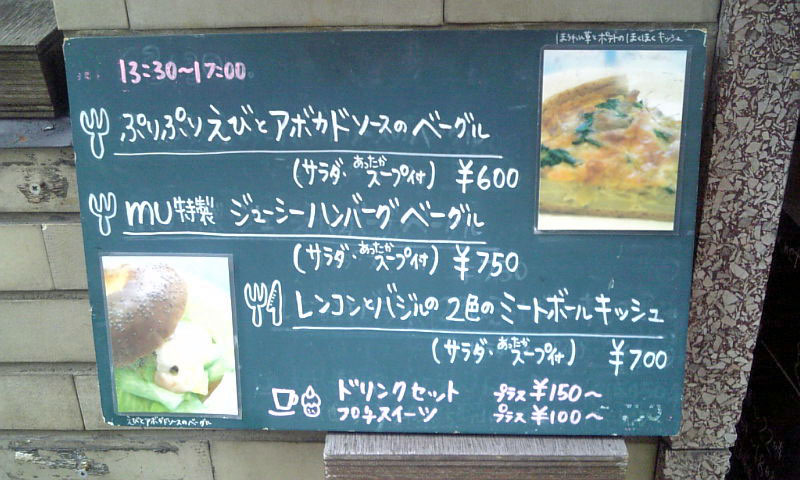 ほうれん草とポテトのほくほくキッシュ
13:30～17:00
ぷりぷりえびとアボカドソースのベーグル
(サラダ・あったかスープ付) ¥600
mu特製 ジューシーハンバーグベーグル
(サラダ・あったかスープ付) ¥750
レンコンとバジルの2色のミートボールキッシュ
(サラダ・あったかスープ付) ¥700
ドリンクセット プラス¥150～
プチスイーツ プラス¥100～
えびとアボカドソースのベーグル